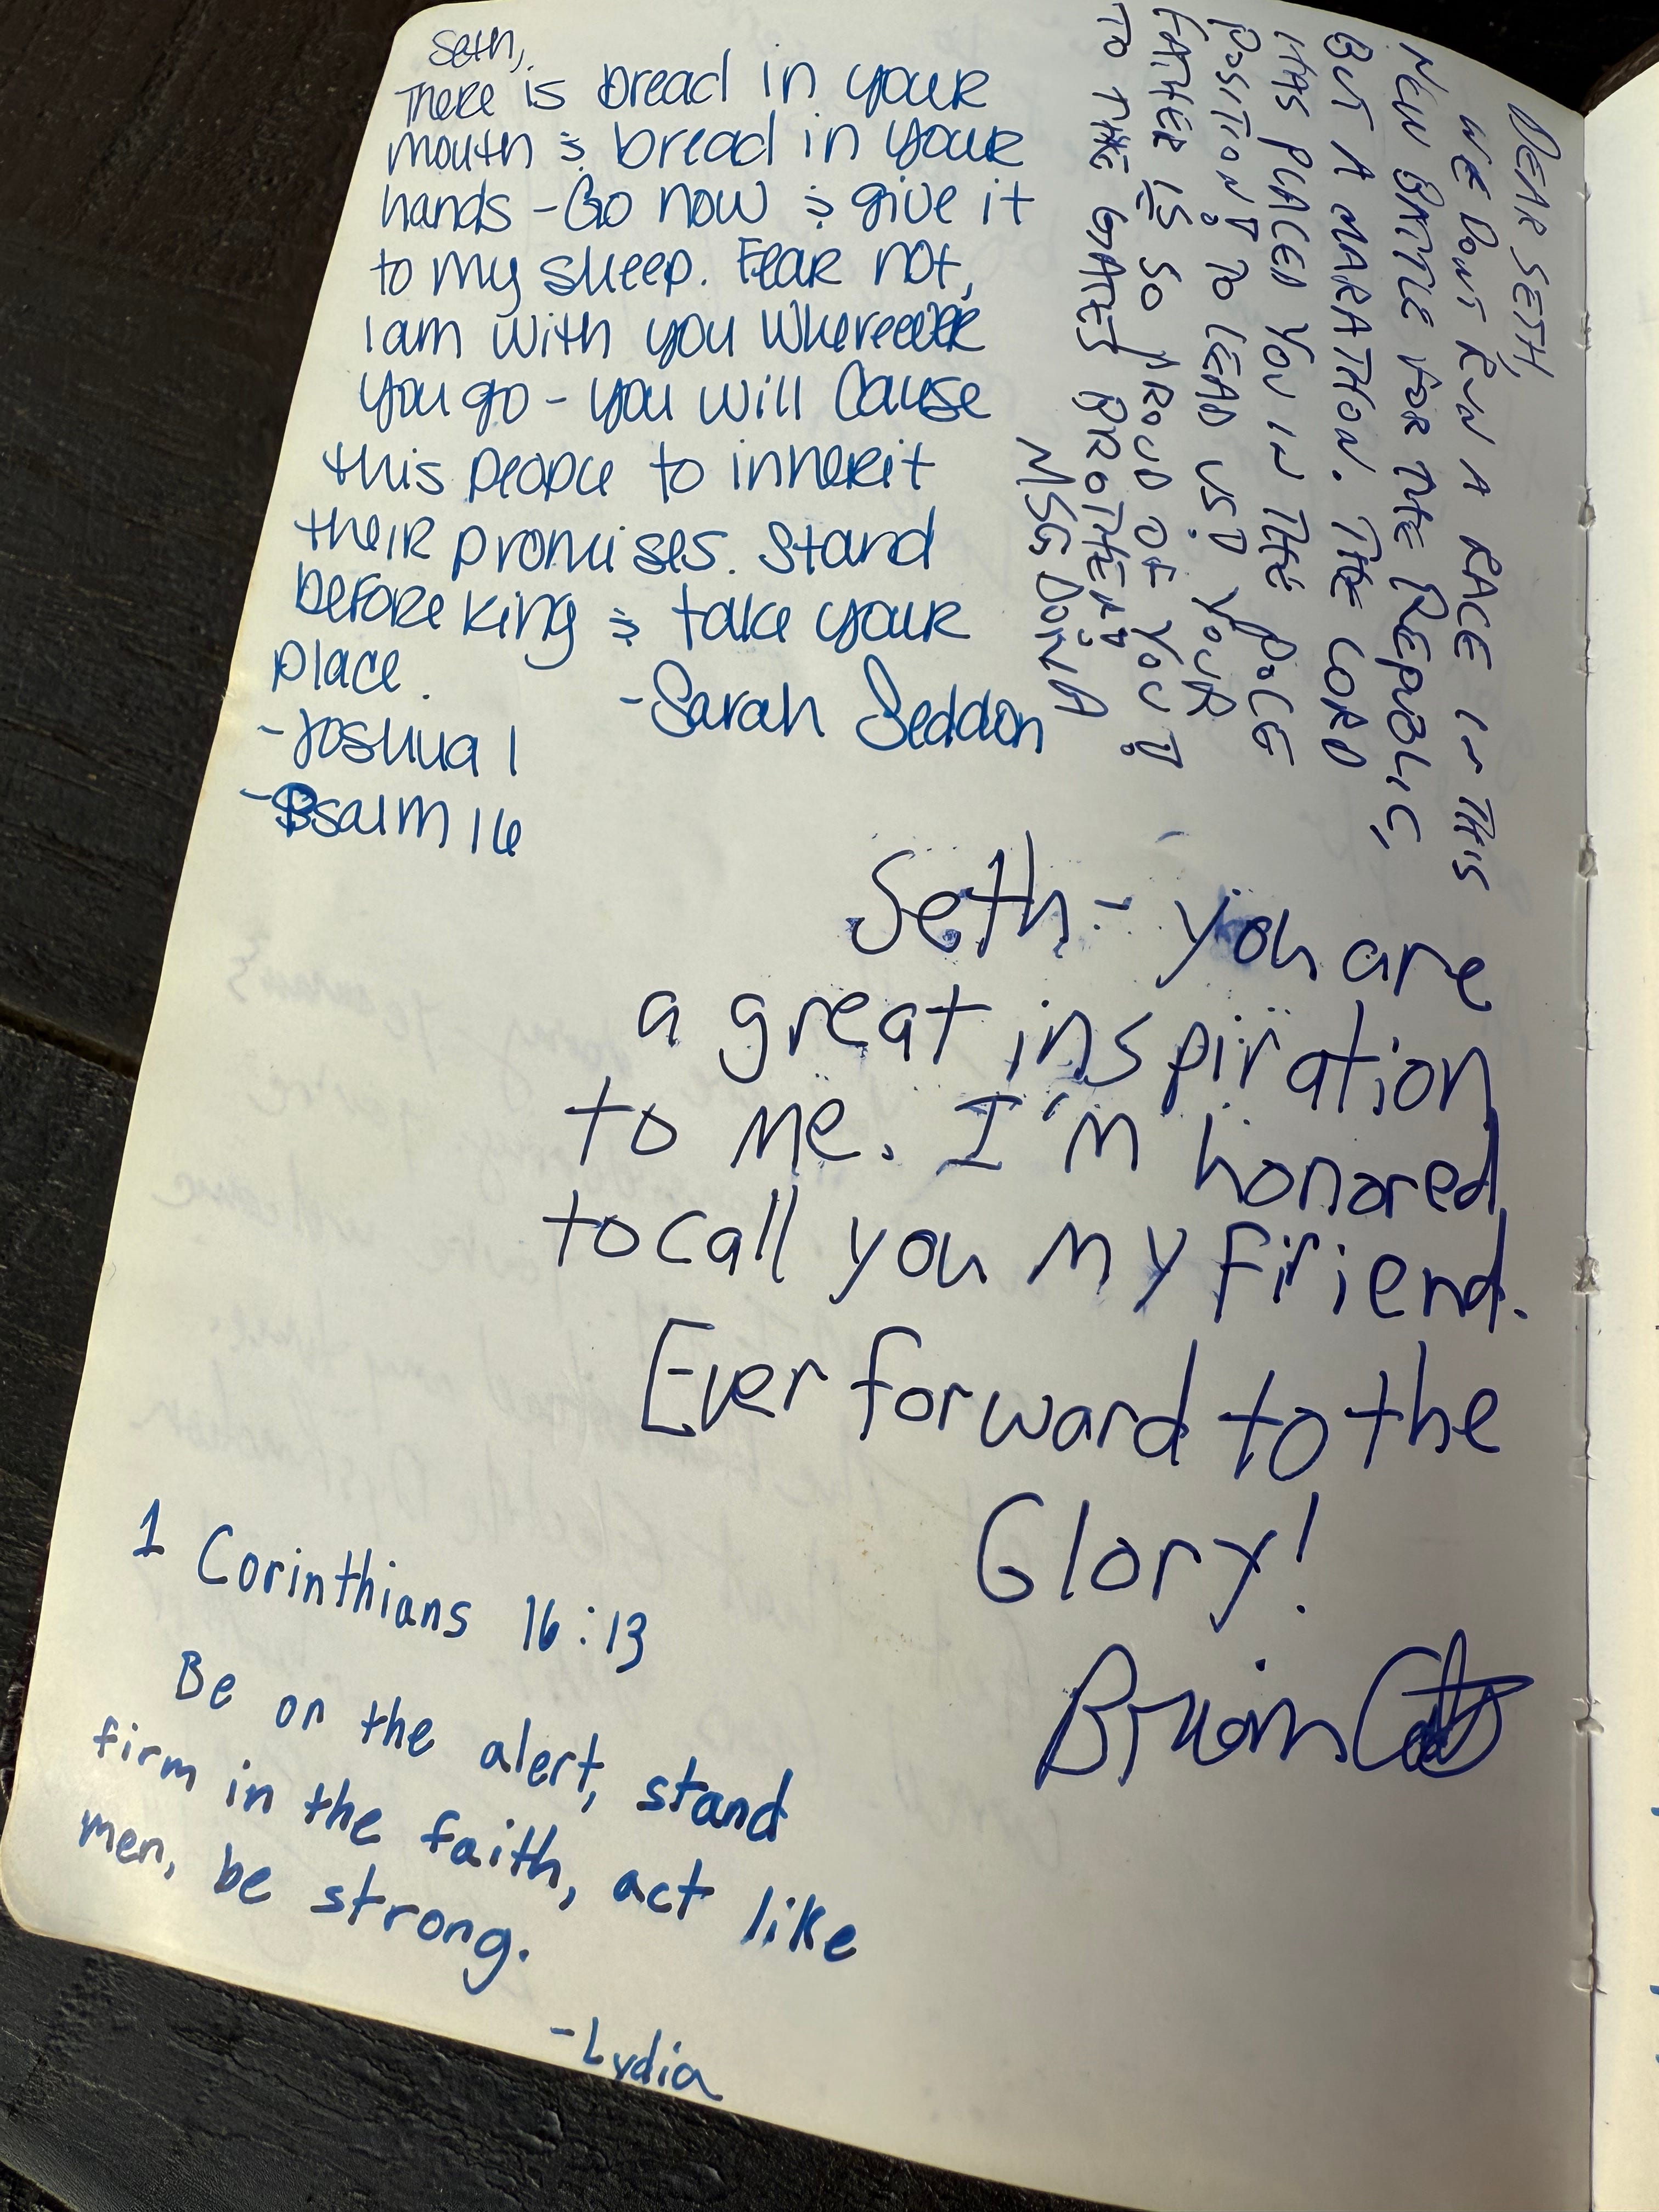 Seth,
There is bread in your
mouth & bread in your
hands - Go now & give it
to my sheep. Fear not,
I am with you whereever
you go - you will cause
this people to inherit
their promises. Stand
before king & take your
place.
- Sarah Seddon
- Joshua 1
- Psalm 16
DEAR SETH,
WE DON'T RUN A RACE IN THIS
NEW BATTLE FOR THE REPUBLIC,
BUT A MARATHON. THE LORD
HAS PLACED YOU IN THE POLE
POSITION! TO LEAD US! YOUR
FATHER IS SO PROUD OF YOU!
TO THE GATES BROTHER!
MSG DONA
Seth - you are
a great inspiration
to me. I'm honored
to call you my friend.
Ever forward to the
Glory!
Brian
1 Corinthians 16:13
Be on the alert, stand
firm in the faith, act like
men, be strong.
- Lydia